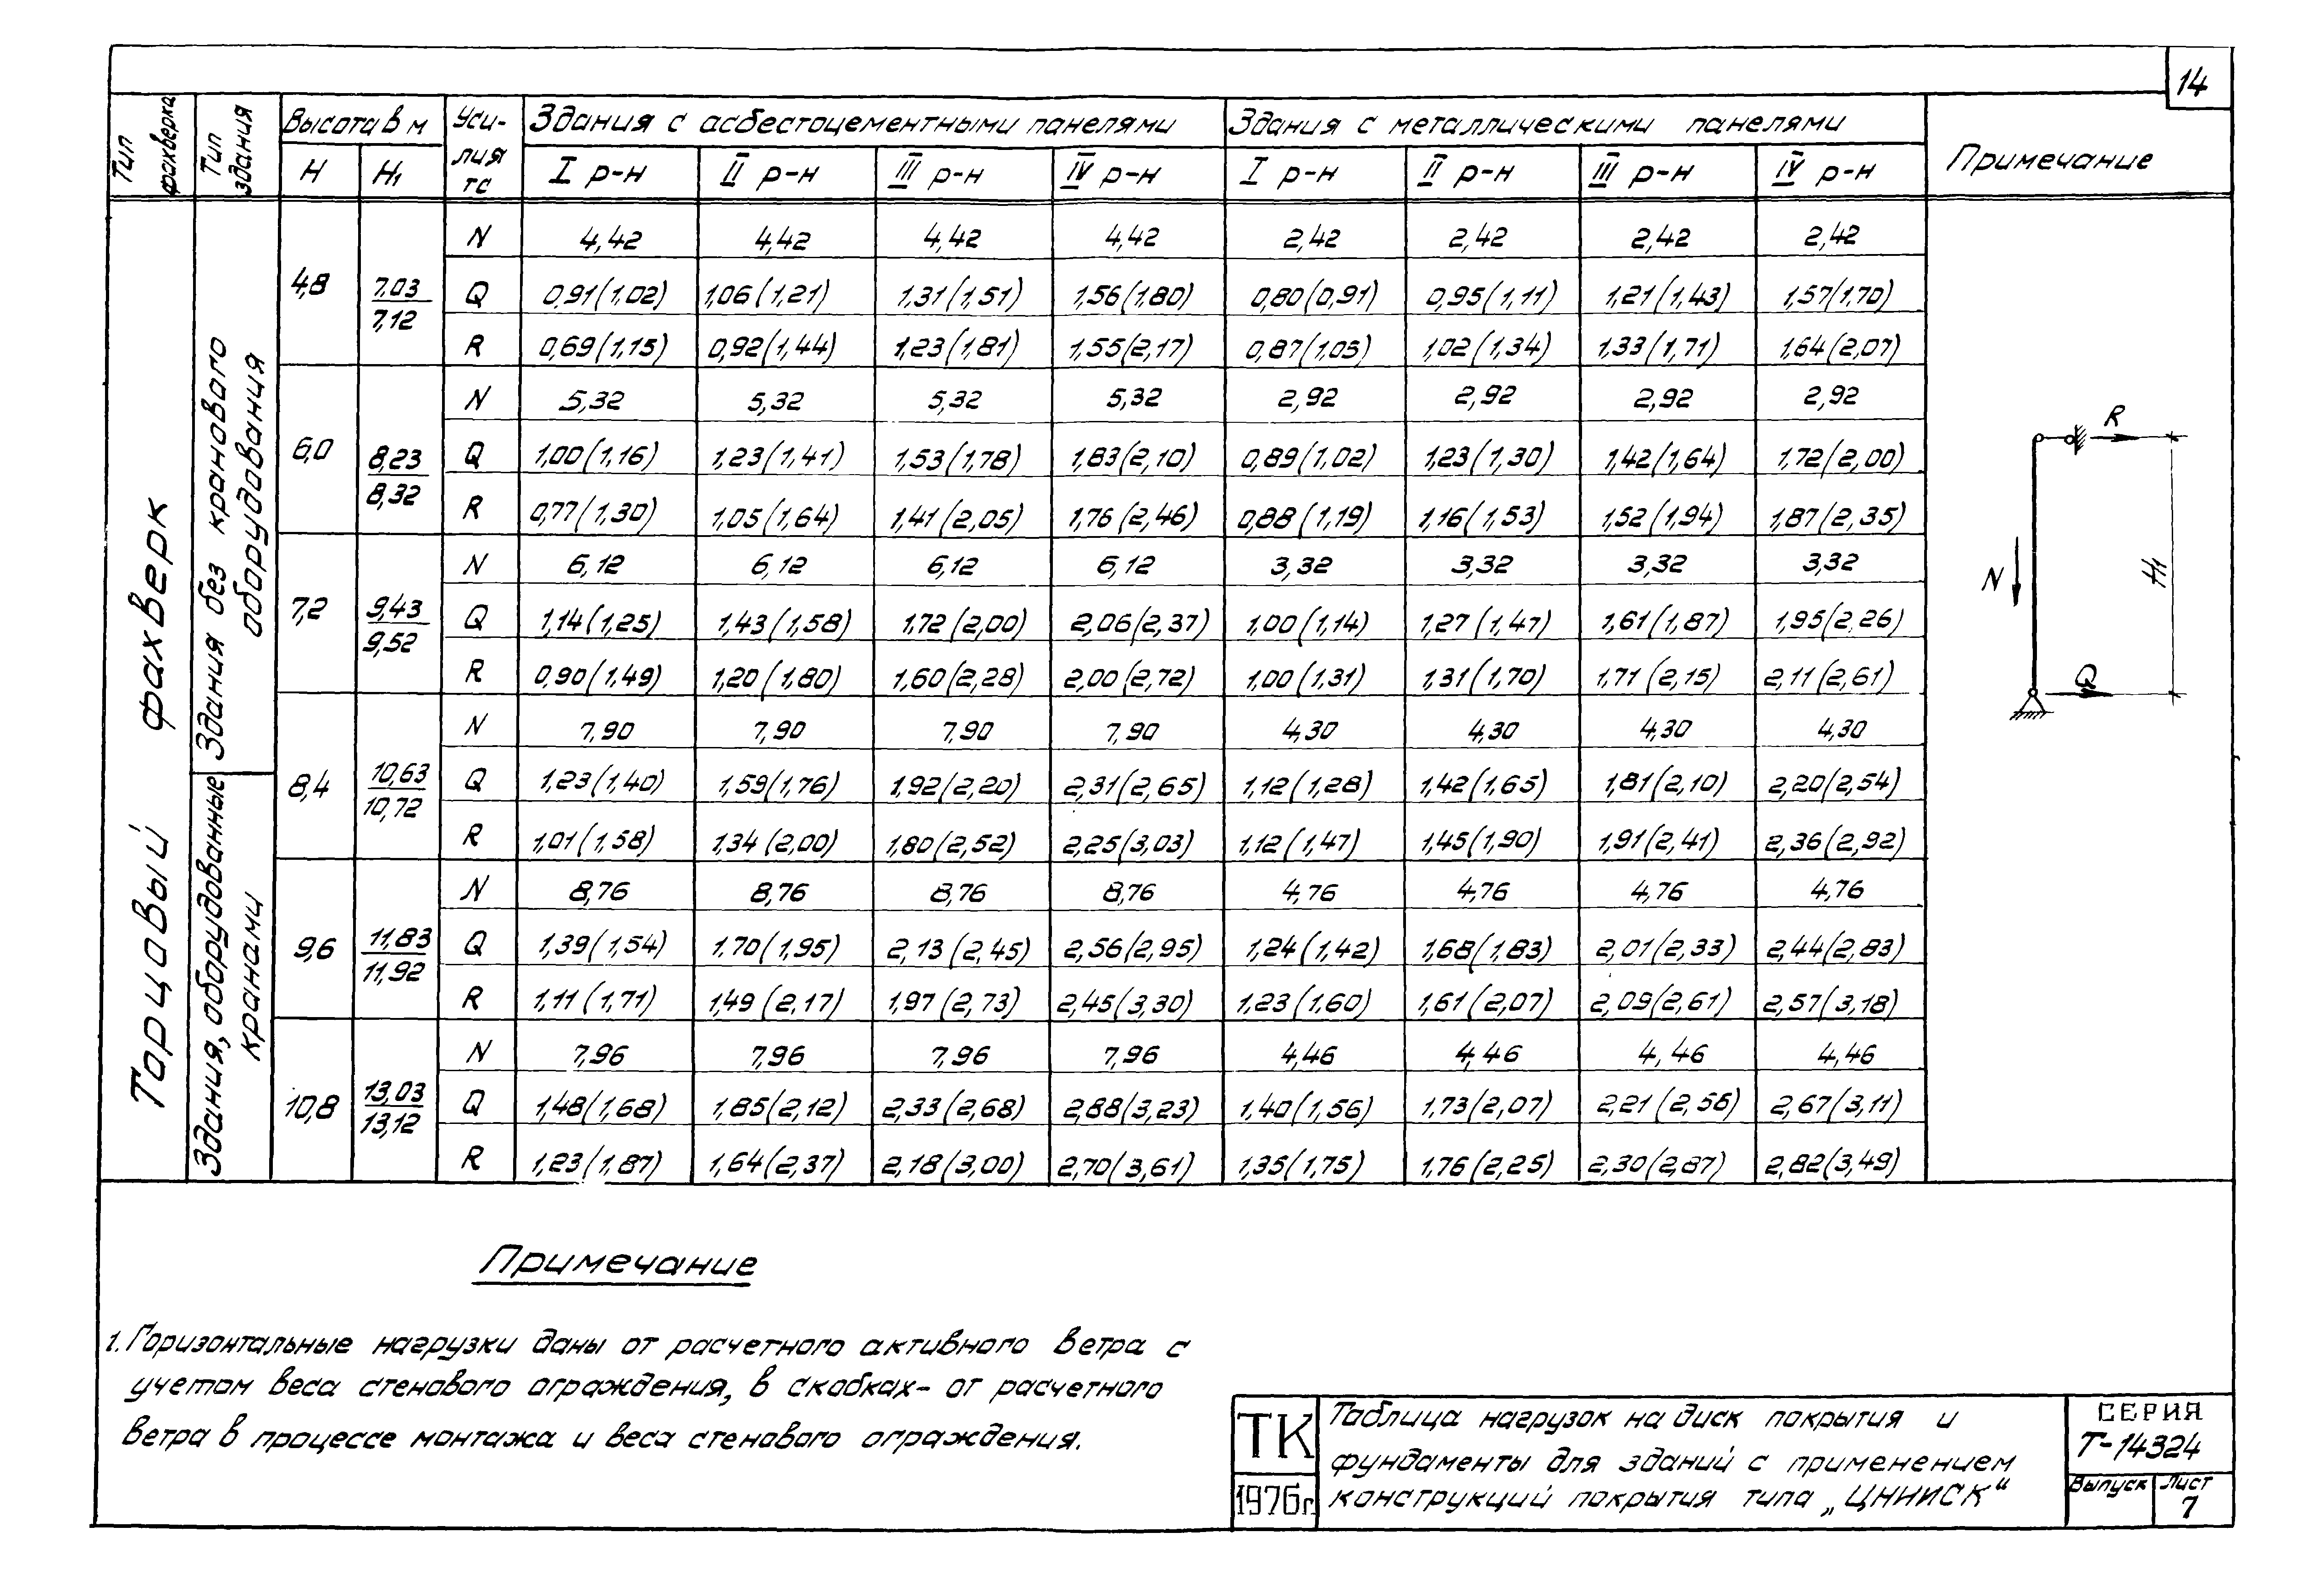 14
Тип фахверка
Тип здания
Высота в м
Уси-
лия
тс
Здания с асбестоцементными панелями
Здания с металлическими панелями
Примечание
H H₁ I р-н II р-н III р-н IV р-н I р-н II р-н III р-н IV р-н
Торцовый фахверк
Здания без кранового оборудования
Здания, оборудованные кранами
N 4,42 4,42 4,42 4,42 2,42 2,42 2,42 2,42
4,8 7,03/7,12 Q 0,91(1,02) 1,06(1,21) 1,31(1,51) 1,56(1,80) 0,80(0,91) 0,95(1,11) 1,21(1,43) 1,57(1,70)
R 0,69(1,15) 0,92(1,44) 1,23(1,81) 1,55(2,17) 0,87(1,05) 1,02(1,34) 1,33(1,71) 1,64(2,07)
N 5,32 5,32 5,32 5,32 2,92 2,92 2,92 2,92
6,0 8,23/8,32 Q 1,00(1,16) 1,23(1,41) 1,53(1,78) 1,83(2,10) 0,89(1,02) 1,23(1,30) 1,42(1,64) 1,72(2,00)
R 0,77(1,30) 1,05(1,64) 1,41(2,05) 1,76(2,46) 0,88(1,19) 1,16(1,53) 1,52(1,94) 1,87(2,35)
N 6,12 6,12 6,12 6,12 3,32 3,32 3,32 3,32
7,2 9,43/9,52 Q 1,14(1,25) 1,43(1,58) 1,72(2,00) 2,06(2,37) 1,00(1,14) 1,27(1,47) 1,61(1,87) 1,95(2,26)
R 0,90(1,49) 1,20(1,80) 1,60(2,28) 2,00(2,72) 1,00(1,31) 1,31(1,70) 1,71(2,15) 2,11(2,61)
N 7,90 7,90 7,90 7,90 4,30 4,30 4,30 4,30
8,4 10,63/10,72 Q 1,23(1,40) 1,59(1,76) 1,92(2,20) 2,31(2,65) 1,12(1,28) 1,42(1,65) 1,81(2,10) 2,20(2,54)
R 1,01(1,58) 1,34(2,00) 1,80(2,52) 2,25(3,03) 1,12(1,47) 1,45(1,90) 1,91(2,41) 2,36(2,92)
N 8,76 8,76 8,76 8,76 4,76 4,76 4,76 4,76
9,6 11,83/11,92 Q 1,39(1,54) 1,70(1,95) 2,13(2,45) 2,56(2,95) 1,24(1,42) 1,68(1,83) 2,01(2,33) 2,44(2,83)
R 1,11(1,71) 1,49(2,17) 1,97(2,73) 2,45(3,30) 1,23(1,60) 1,61(2,07) 2,09(2,61) 2,57(3,18)
N 7,96 7,96 7,96 7,96 4,46 4,46 4,46 4,46
10,8 13,03/13,12 Q 1,48(1,68) 1,85(2,12) 2,33(2,68) 2,88(3,23) 1,40(1,56) 1,73(2,07) 2,21(2,56) 2,67(3,11)
R 1,23(1,87) 1,64(2,37) 2,18(3,00) 2,70(3,61) 1,35(1,75) 1,76(2,25) 2,30(2,87) 2,82(3,49)
R
N
Q
Примечание
1. Горизонтальные нагрузки даны от расчетного активного ветра с
учетом веса стенового ограждения, в скобках - от расчетного
ветра в процессе монтажа и веса стенового ограждения.
ТК
1976г.
Таблица нагрузок на диск покрытия и
фундаменты для зданий с применением
конструкций покрытия типа „ЦНИИСК“
СЕРИЯ
Т-14324
Выпуск
Лист
7